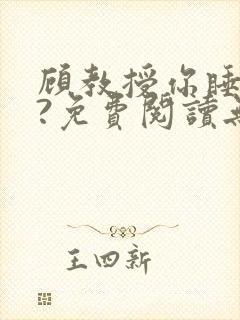 顾教授你睡
?免費閱讀無
王四新